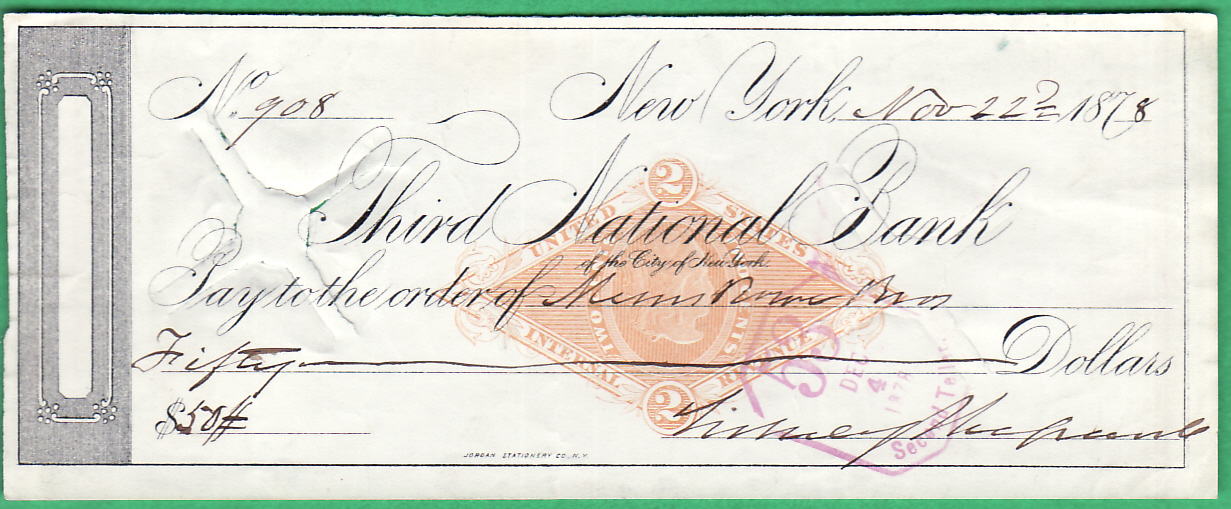 No. 908 New York, Nov 22d 1878
Third National Bank
of the City of New York.
Pay to the order of Bros
Fifty Dollars
$50#
2
UNITED STATES
TWO CENTS
INTERNAL REVENUE
2
DEC
4
1878
Second Teller.
Sidney
JORDAN STATIONERY CO., N.Y.